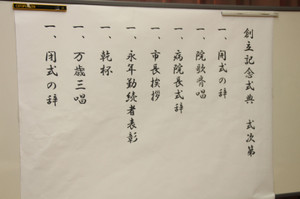 創立記念式典　式次第
一、開式の辞
一、院歌斉唱
一、病院長式辞
一、市長挨拶
一、永年勤続者表彰
一、乾杯
一、万歳三唱
一、閉式の辞